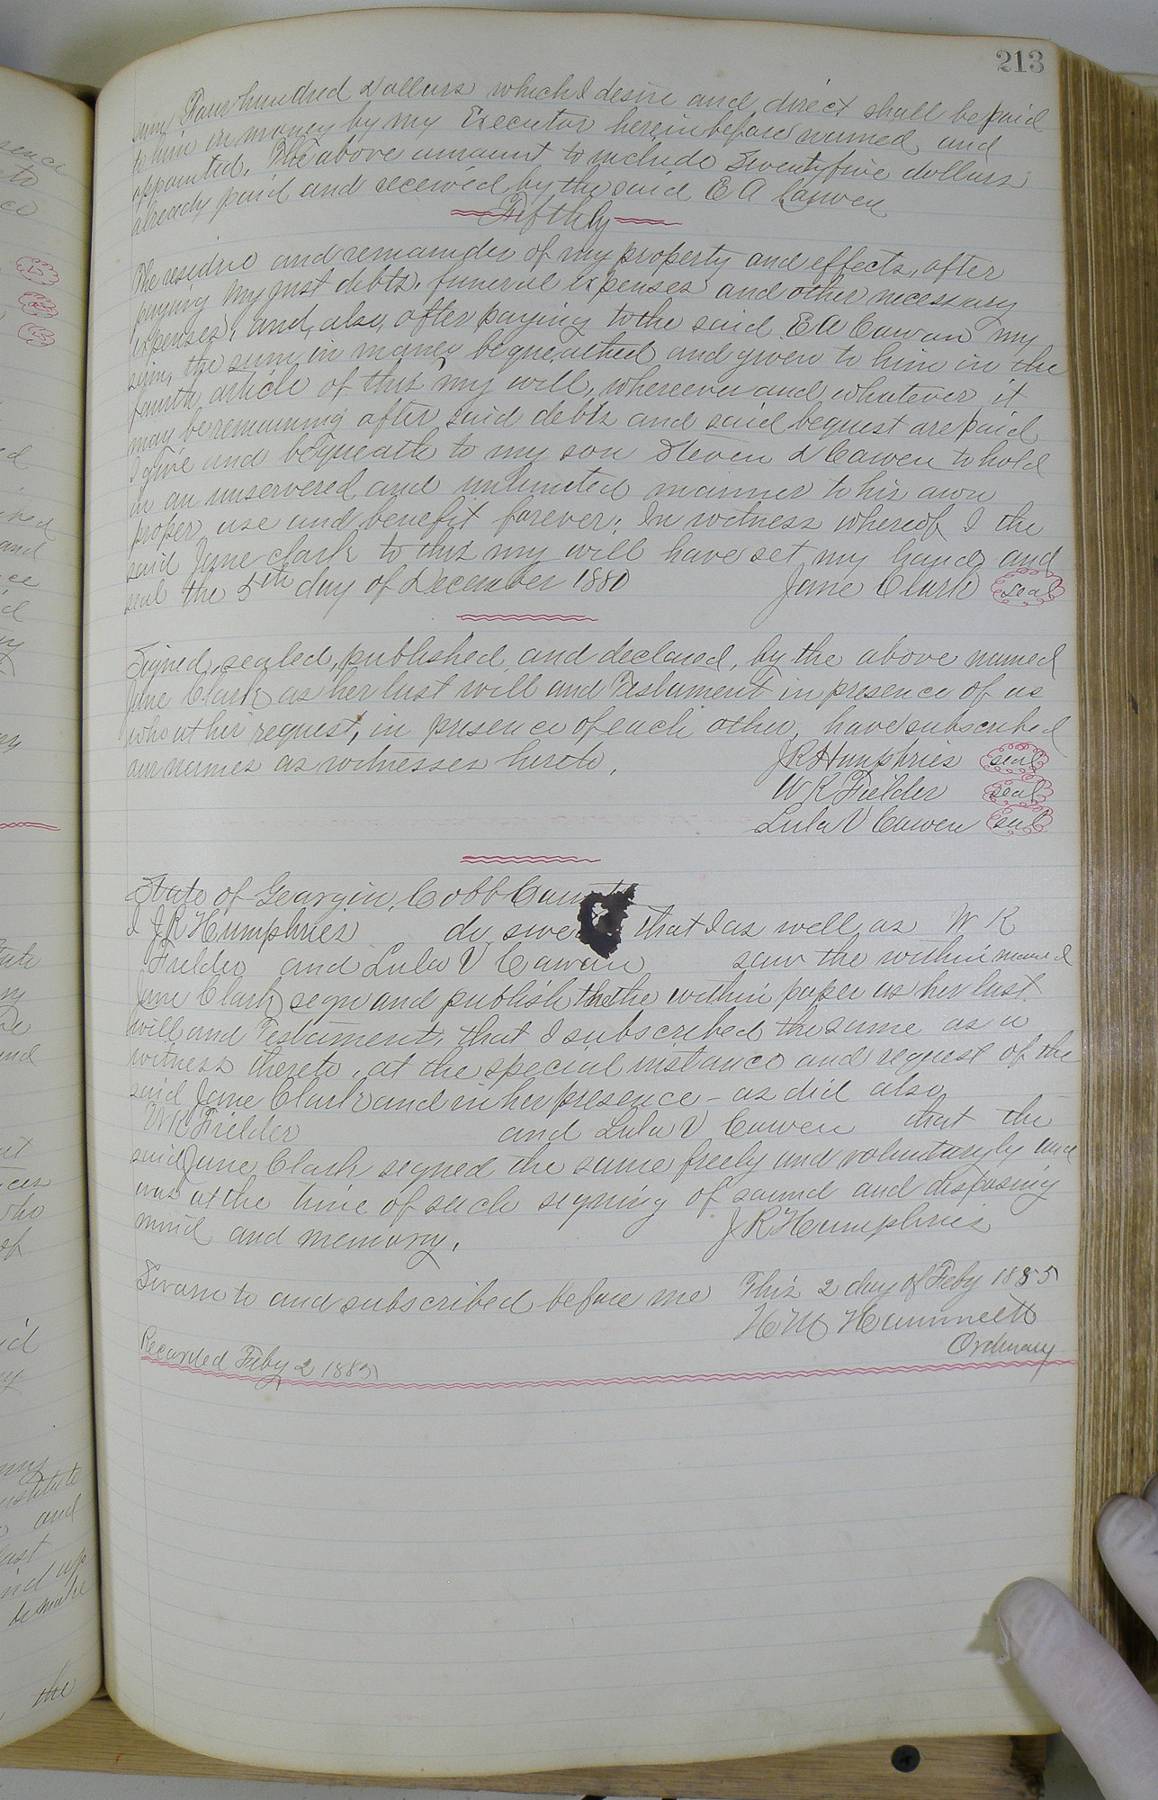 213
sum Four hundred Dollars which I desire and direct shall be paid
to him in money by my Executor hereinbefore named and
appointed. The above amount to include Twenty five dollars
already paid and received by the said E A Cawen
Fifthly
The residue and remainder of my property and effects, after
paying my just debts, funeral expenses and other necessary
expenses, and, also, after paying to the said E A Cawen my
son, the sum in money bequeathed and given to him in the
fourth article of this my will, wherever and whatever it
may be remaining after said debts and said bequest are paid
I give and bequeath to my son Steven D Cawen to hold
in an unservered and unlimited manner to his own
proper use and benefit forever. In witness whereof I the
said Jane Clark to this my will have set my hand and
seal the 5th day of December 1880 Jane Clark seal
Signed, sealed, published and declared, by the above named
Jane Clark as her last will and Testament in presence of us
who at her request, in presence of each other, have subscribed
our names as witnesses hereto. J R Humphries seal
W K Fielder seal
Lula V Cawen seal
State of Georgia, Cobb County
I J R Humphries do swear that I as well as W K
Fielder and Lula V Cawen saw the within named
Jane Clark sign and publish the within paper as her last
will and Testament, that I subscribed the same as a
witness thereto, at the special instance and request of the
said Jane Clark and in her presence - as did also
W K Fielder and Lula V Cawen that the
said Jane Clark signed the same freely and voluntaryly and
was at the time of such signing of sound and disposing
mind and memory. J R Humphries
Sworn to and subscribed before me This 2 day of Feby 1885
H M Hammett
Ordinary
Recorded Feby 2 1885